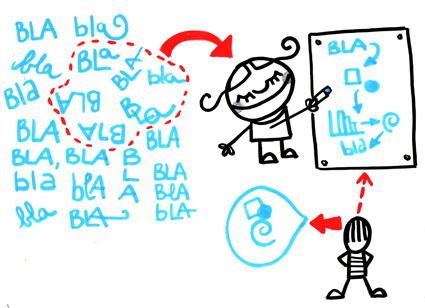 BLA bla
bla BLa BLA bla
Bla BLA Bla
BLA BLA BLA
BLA, BLA BLA
bla blA BLA
BLA
bla BLA bLA
BLA
bla